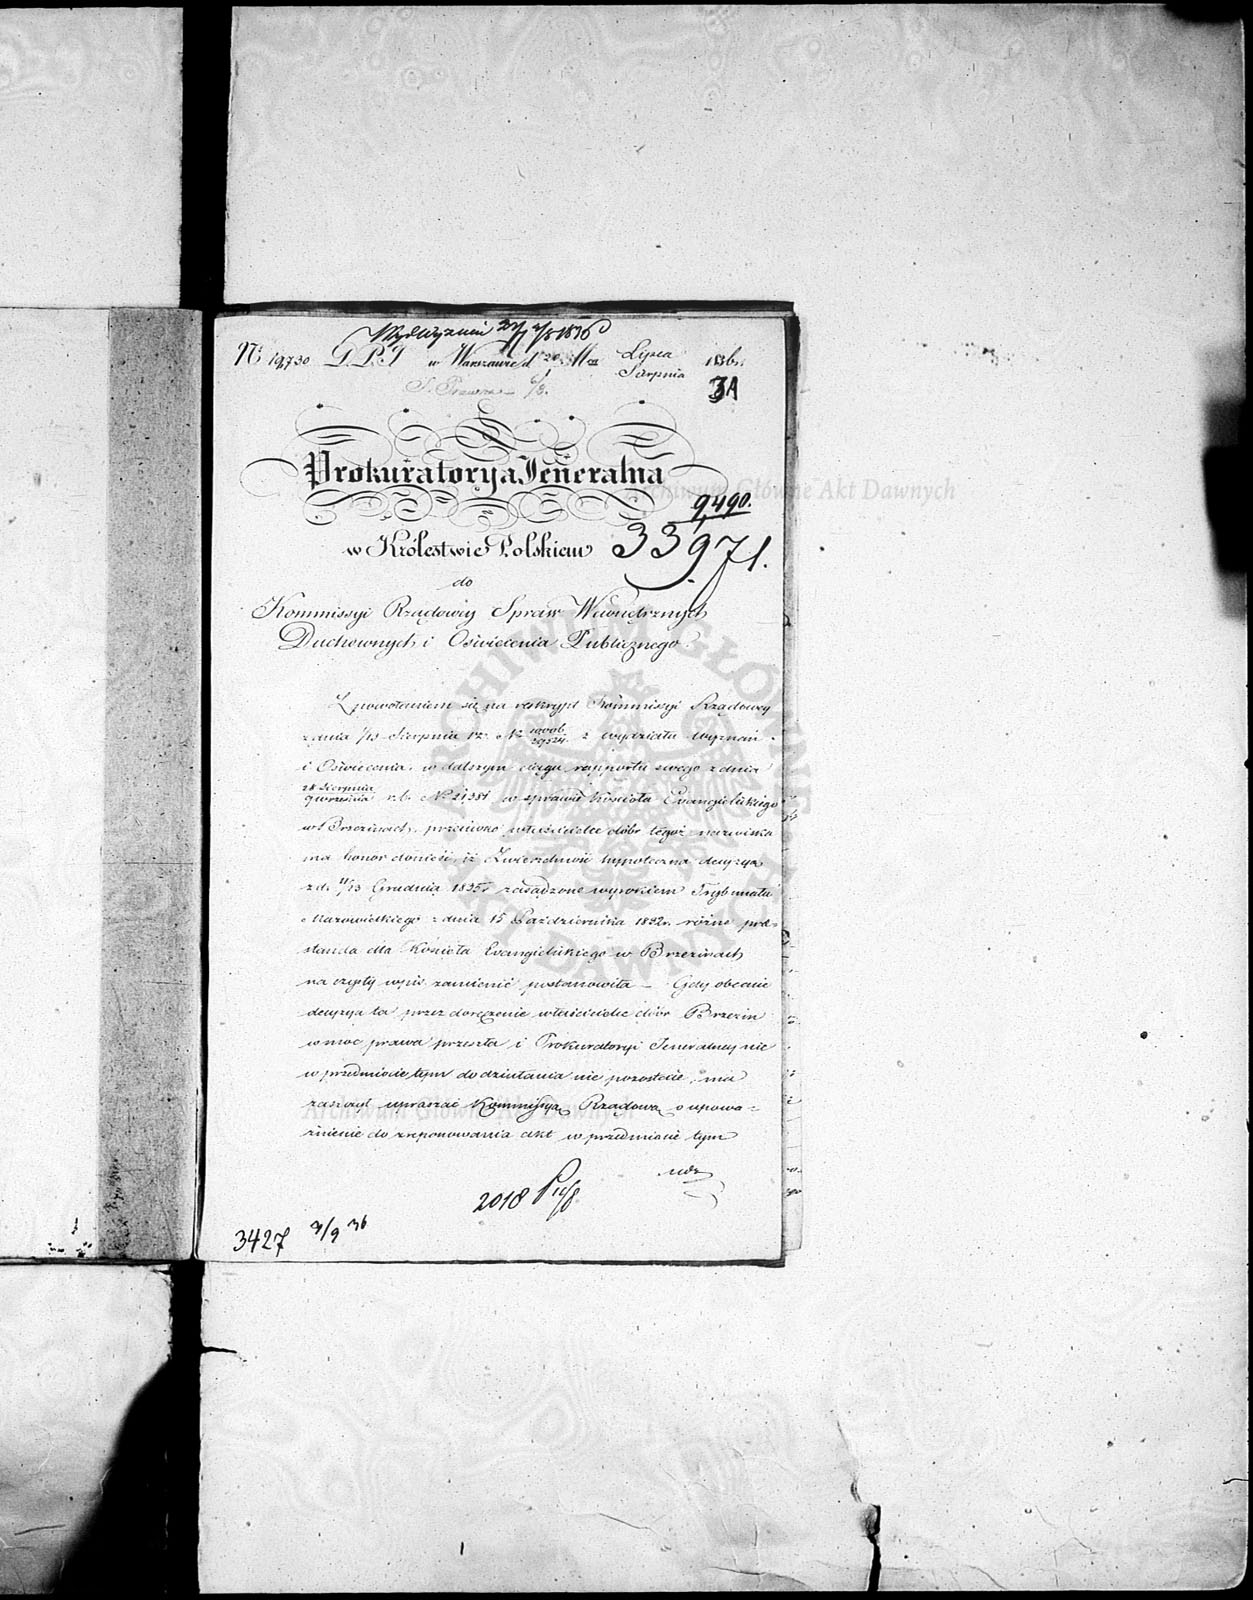 Wydz. Wyznań 27/7 8/8 1836
N. 19,730 G.P.J w Warszawie d. 20 Mca Lipca 1836 r.
Sierpnia
3A
Prokuratorya Jeneralna
9,490.
w Królestwie Polskiem 33,971.
do
Kommissyi Rządowey Spraw Wewnętrznych
Duchownych i Oświecenia Publicznego.
Z powołaniem się na reskrypt Kommissyi Rządowey
z dnia 1/13 Sierpnia r. No z Wydziału Wyznań
i Oświecenia, w dalszym ciągu rapportu swego z dnia
28 Sierpnia
9 Września r. b. No 21,381 w sprawie Kościoła Evangielickiego
w Brzezinach, przeciwko właścicielce dóbr tegoż nazwiska
ma honor donieść, iż Zwierzchność hypoteczna decyzyą
z d. 1/13 Grudnia 1835 r. zasądzone wyrokiem Trybunału
Mazowieckiego z dnia 15 Października 1832 r. różne prae-
standa dla Kościoła Evangielickiego w Brzezinach
na czysty wpis zamienić postanowiła — Gdy obecnie
decyzya ta przez doręczenie właścicielce dóbr Brzezin
w moc prawa przeszła i Prokuratoryi Jeneralney nic
w przedmiocie tym do działania nie pozostaie, ma
zaszczyt upraszać Kommissyą Rządową o upowa-
żnienie do zreponowania akt w przedmiocie tym
2018
3427 3/9 36
Archiwum Główne Akt Dawnych
Archiwum Główne Akt Dawnych
ARCHIWUM GŁÓWNE AKT DAWNYCH